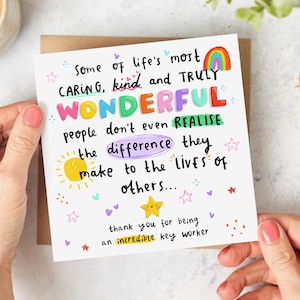 Some of life's most
CARING, kind and TRULY
WONDERFUL
people don't even REALISE
the difference they
make to the lives of
others...
thank you for being
an incredible key worker